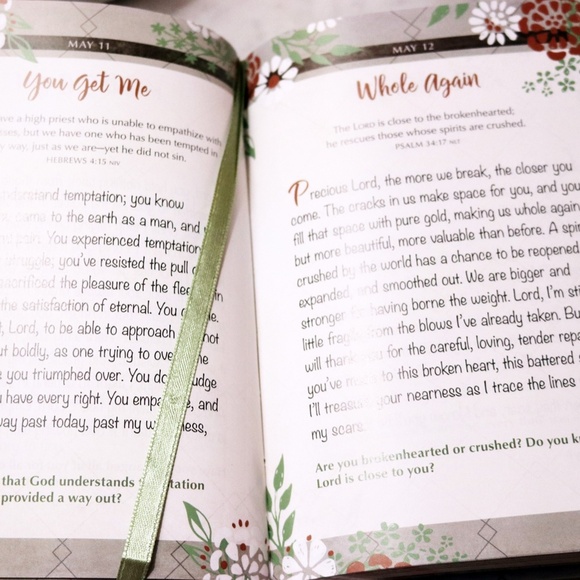 MAY 11
You Get Me
ve a high priest who is unable to empathize with
ses, but we have one who has been tempted in
way, just as we are—yet he did not sin.
HEBREWS 4:15 NIV
nderstand temptation; you know
came to the earth as a man, and
pain. You experienced temptation
struggle; you've resisted the pull
sacrificed the pleasure of the in
the satisfaction of eternal. You
t, Lord, to be able to approach not
ut boldly, as one trying to over
e you triumphed over. You do judge
u have every right. You and
way past today, past my
that God understands
provided a way out?
MAY 12
Whole Again
The LORD is close to the brokenhearted;
he rescues those whose spirits are crushed.
PSALM 34:17 NLT
Precious Lord, the more we break, the closer you
come. The cracks in us make space for you, and you
fill that space with pure gold, making us whole again
but more beautiful, more valuable than before. A spi
crushed by the world has a chance to be reopened
expanded, and smoothed out. We are bigger and
stronger for having borne the weight. Lord, I'm sti
little from the blows I've already taken. Bu
will thank you for the careful, loving, tender repa
you've to this broken heart, this battered s
I'll treasure your nearness as I trace the lines
my scars.
Are you brokenhearted or crushed? Do you k
Lord is close to you?